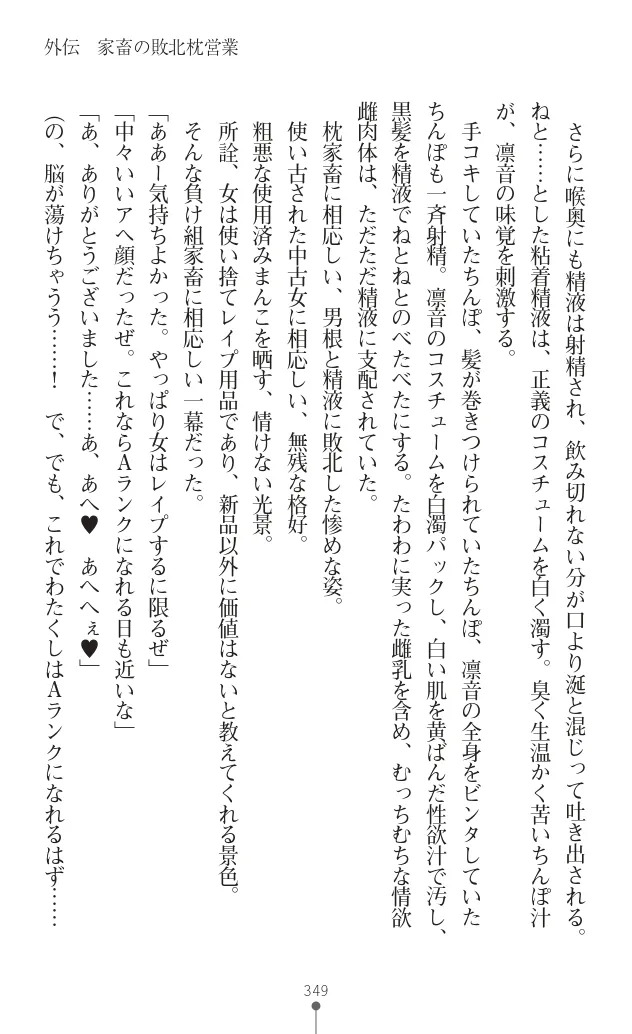 外伝　家畜の敗北枕営業
さらに喉奥にも精液は射精され、飲み切れない分が口より涎と混じって吐き出される。
ねと……とした粘着精液は、正義のコスチュームを白く濁す。臭く生温かく苦いちんぽ汁
が、凛音の味覚を刺激する。
手コキしていたちんぽ、髪が巻きつけられていたちんぽ、凛音の全身をビンタしていた
ちんぽも一斉射精。凛音のコスチュームを白濁パックし、白い肌を黄ばんだ性欲汁で汚し、
黒髪を精液でねとねとのべたべたにする。たわわに実った雌乳を含め、むっちむちな情欲
雌肉体は、ただただ精液に支配されていた。
枕家畜に相応しい、男根と精液に敗北した惨めな姿。
使い古された中古女に相応しい、無残な格好。
粗悪な使用済みまんこを晒す、情けない光景。
所詮、女は使い捨てレイプ用品であり、新品以外に価値はないと教えてくれる景色。
そんな負け組家畜に相応しい一幕だった。
「ああー気持ちよかった。やっぱり女はレイプするに限るぜ」
「中々いいアヘ顔だったぜ。これならAランクになれる日も近いな」
「あ、ありがとうございました……あ、あへ♥　あへへぇ♥」
（の、脳が蕩けちゃうう……！　で、でも、これでわたくしはAランクになれるはず……
349